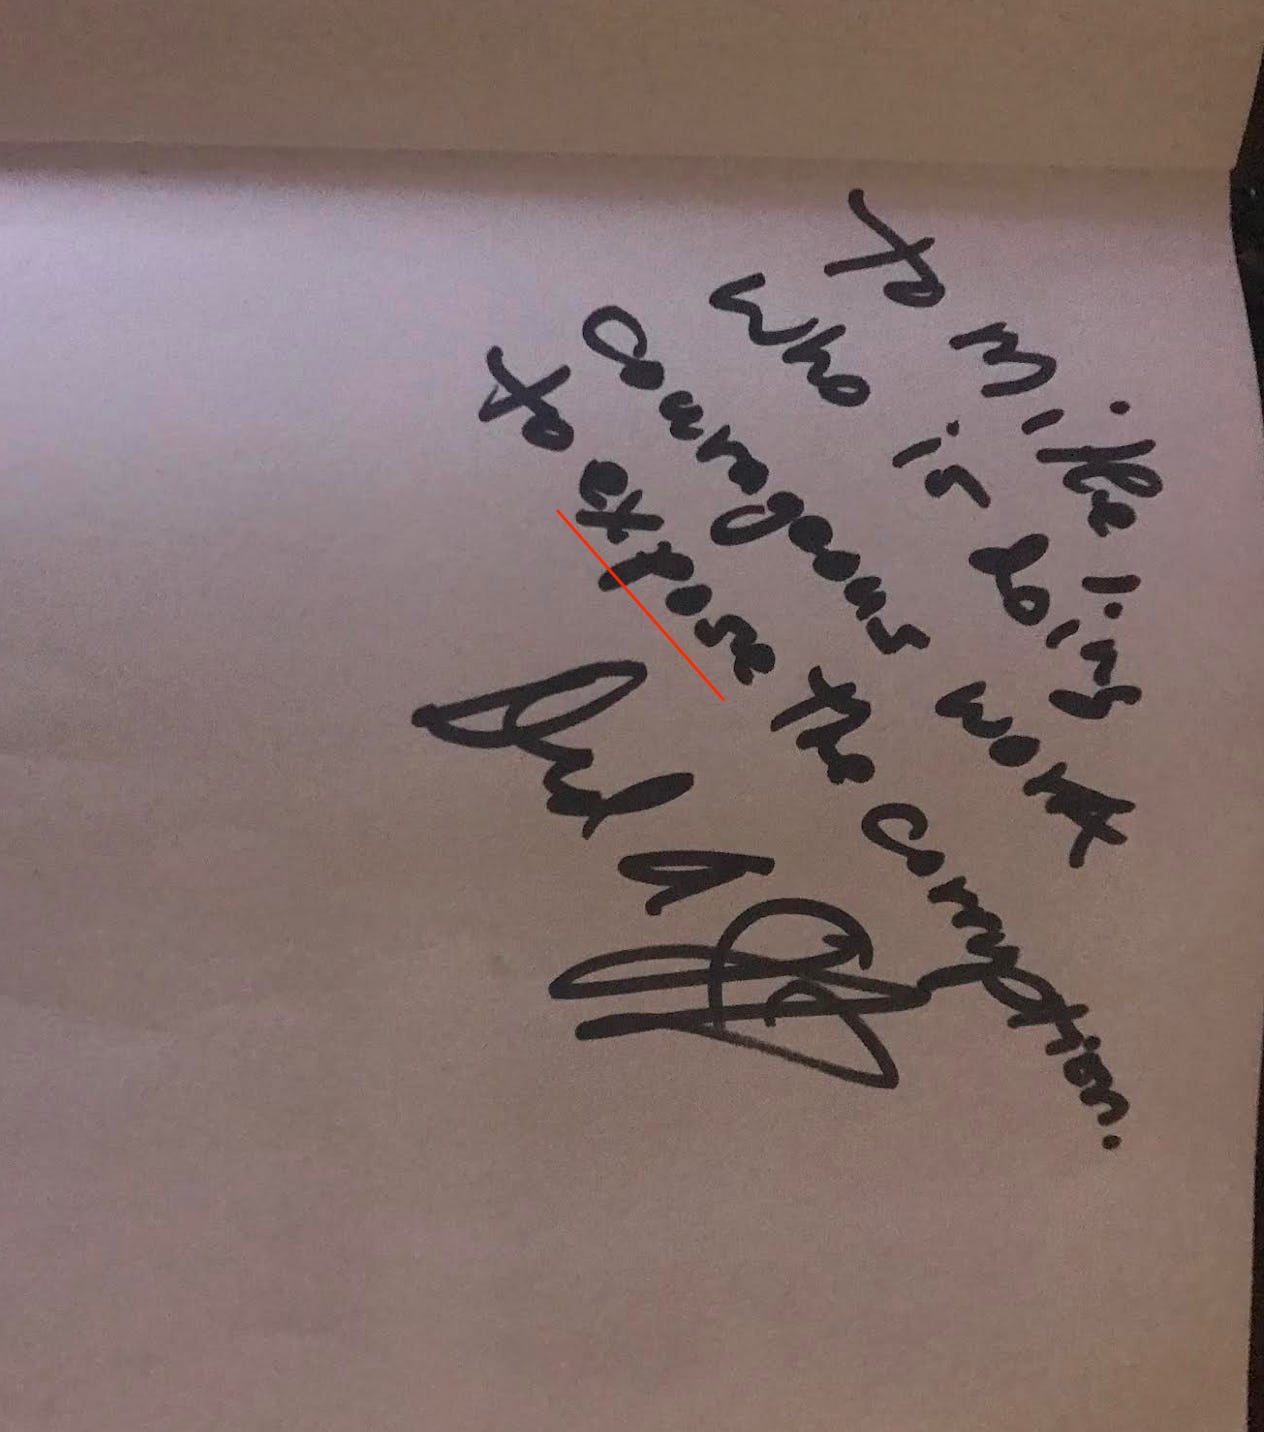 To Mike L.
who is doing
courageous work
to expose the corruption.